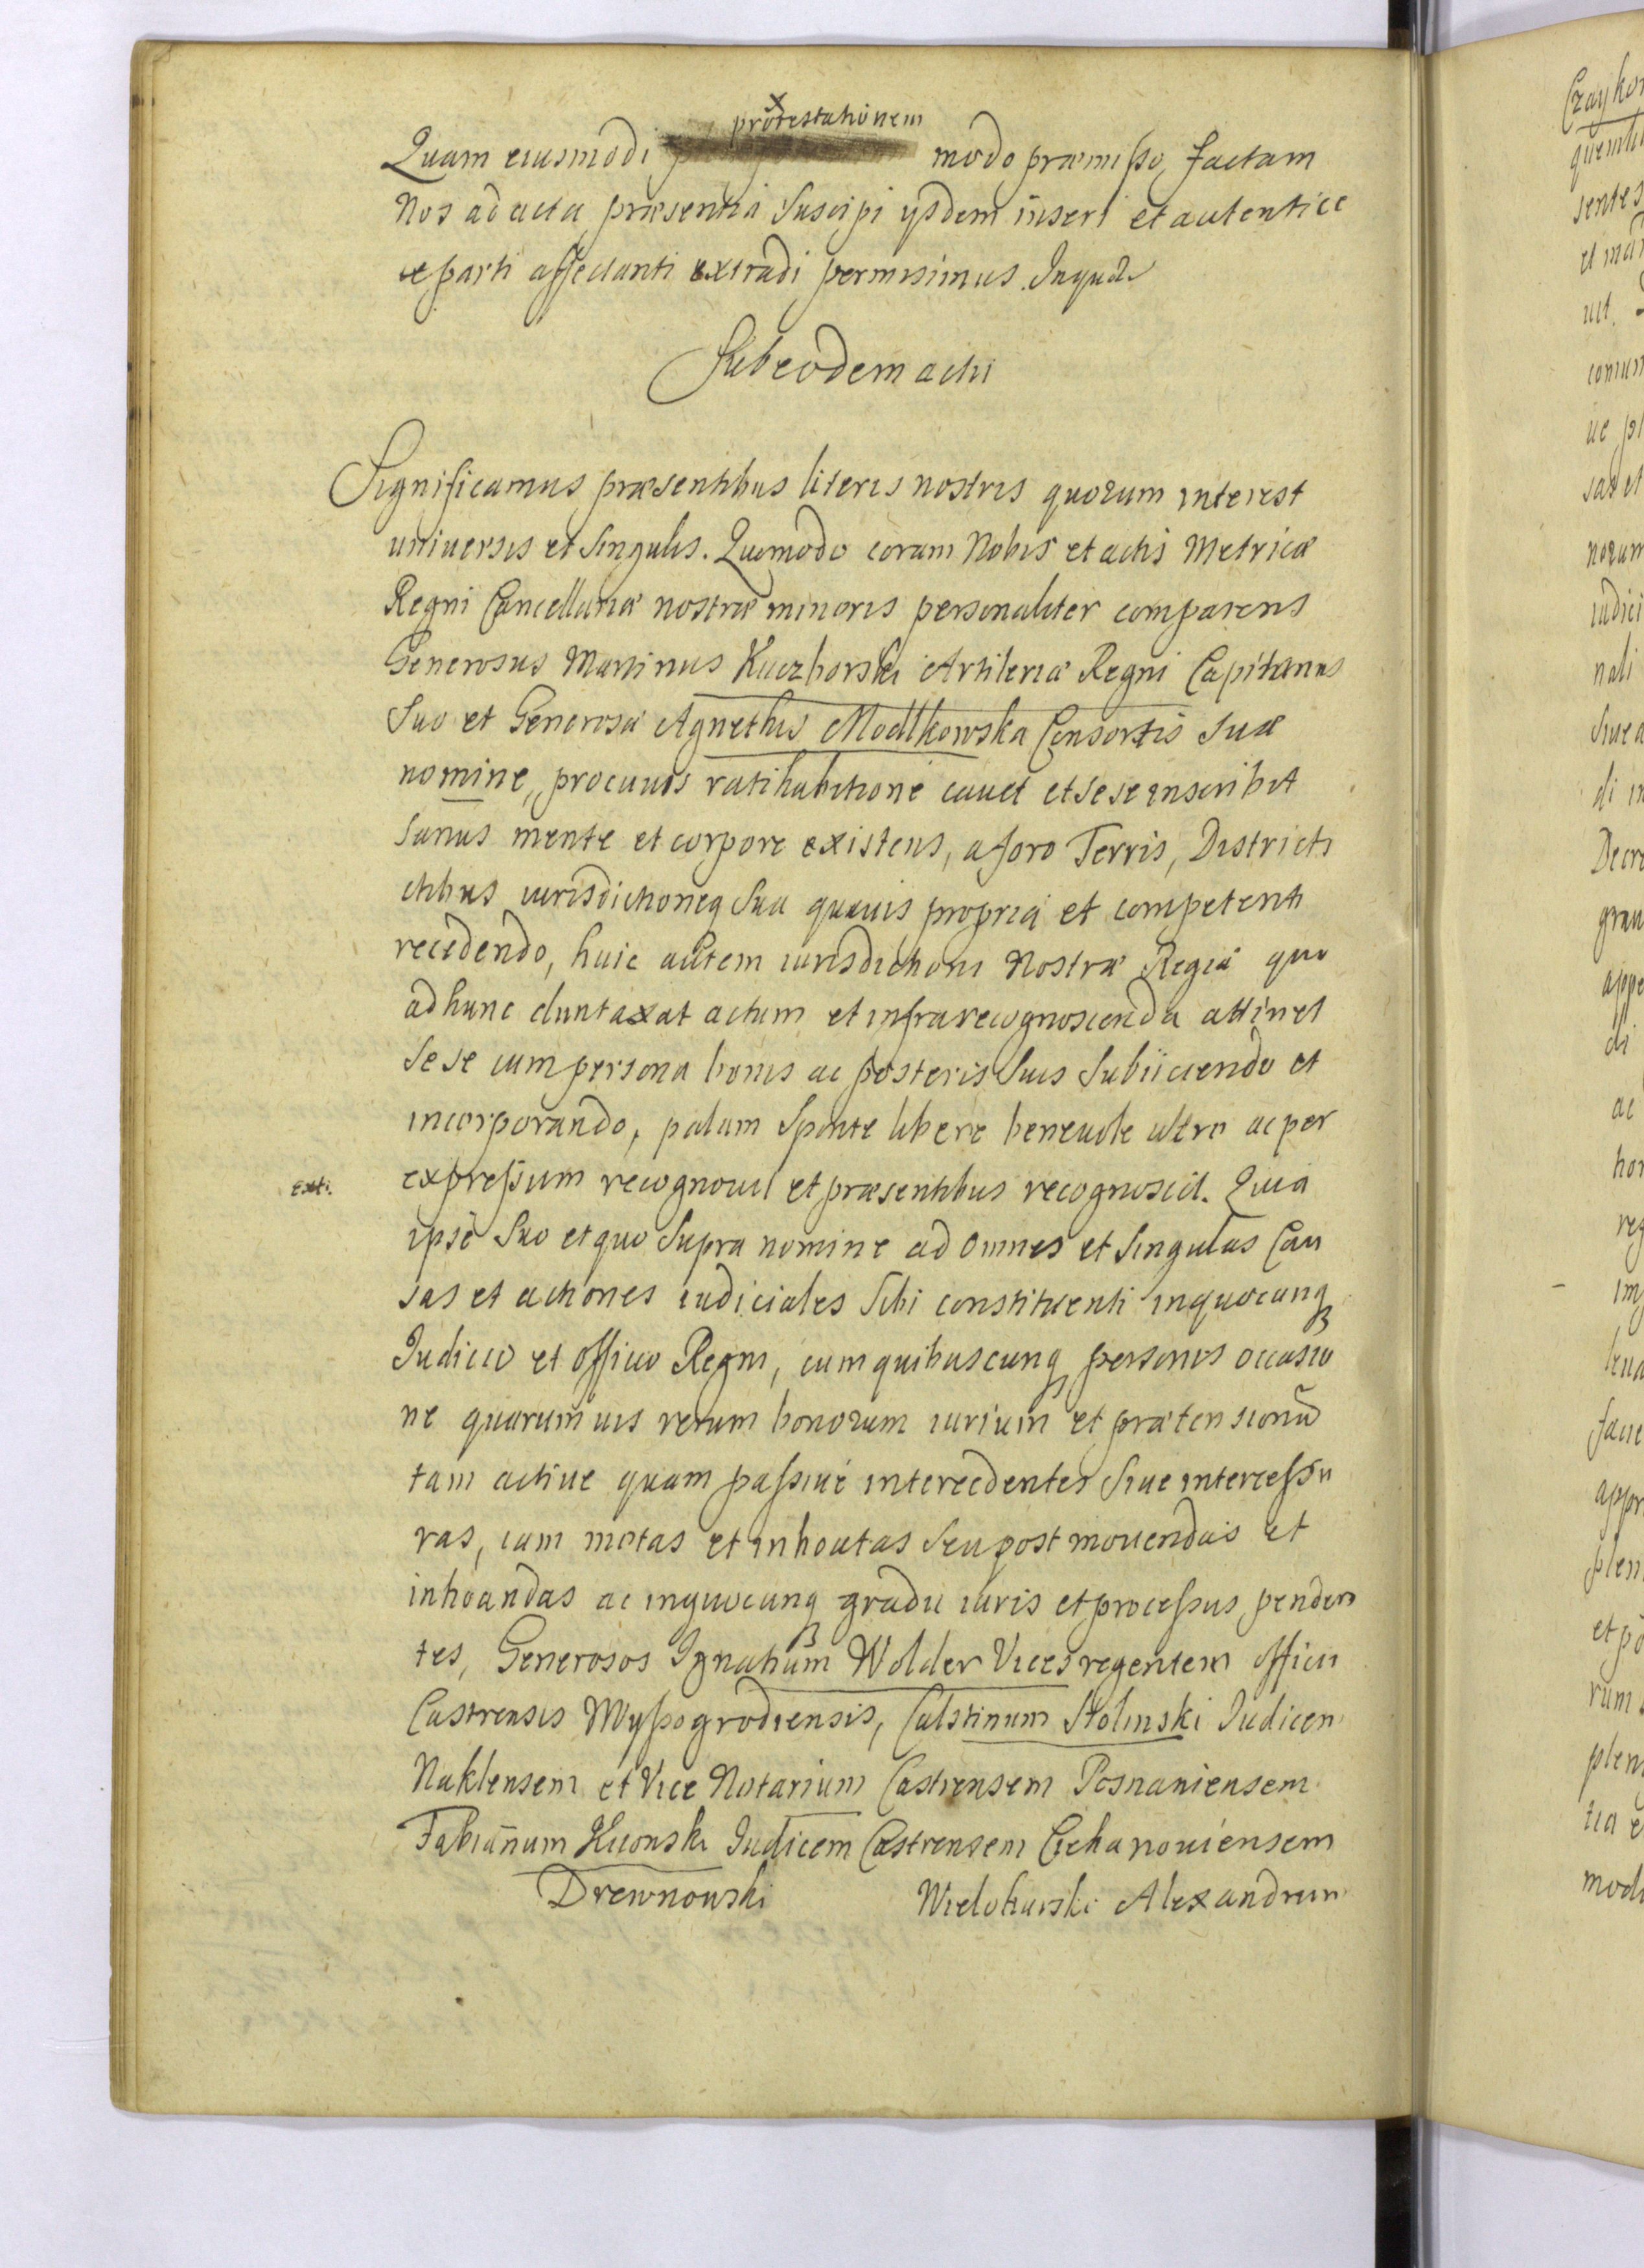 protestationem
Quam eiusmodi modo præmisso factam
Nos ad acta præsentia suscipi ijsdem inseri et autentice
parti affectanti extradi permisimus. In quor
Sub eodem actu
Significamus præsentibus literis nostris quorum interest
universis et singulis. Quomodo coram Nobis et actis Metricæ
Regni Cancellariæ nostræ minoris personaliter comparens
Generosus Martinus Kuczborski Artileriæ Regni Capitanus
suo et Generosæ Agnethis Modlkowska Consortis suæ
nomine, pro cuius ratihabitione cauet et sese inscribit
sanus mente et corpore existens, a foro Terris, Districti
ctibus iurisdictioneq sua quauis propria et competenti
recedendo, huic autem iurisdictioni Nostræ Regiæ quo
ad hunc duntaxat actum et infrarecognoscenda attinet
sese cum persona bonis ac posteris suis subiiciendo et
incorporando, palam sponte libere beneuole ultro ac per
exti. expressum recognouit et præsentibus recognoscit. Quia
ipse suo et quo supra nomine ad omnes et singulas Cau
sas et actiones iudiciales sibi constituenti in quocunq
Iudicio et officio Regni, cum quibuscunq personis occasio
ne quarumuis rerum bonorum iurium et prætensionū
tam actiue quam passiue intercedentes siue intercessu
ras, iam motas et inhoatas seu post mouendas et
inhoandas ac in quocunq gradu iuris et processus penden
tes, Generosos Ignatium Wolder Vicesregentem officii
Castrensis Wyssogrodiensis, Calstinum Stolinski Iudicem
Naklensem et Vice Notarium Castrensem Posnaniensem
Fabianum Kuonski Iudicem Castrensem Ciechanouiensem
Drewnouski Wielohurski Alexandrum